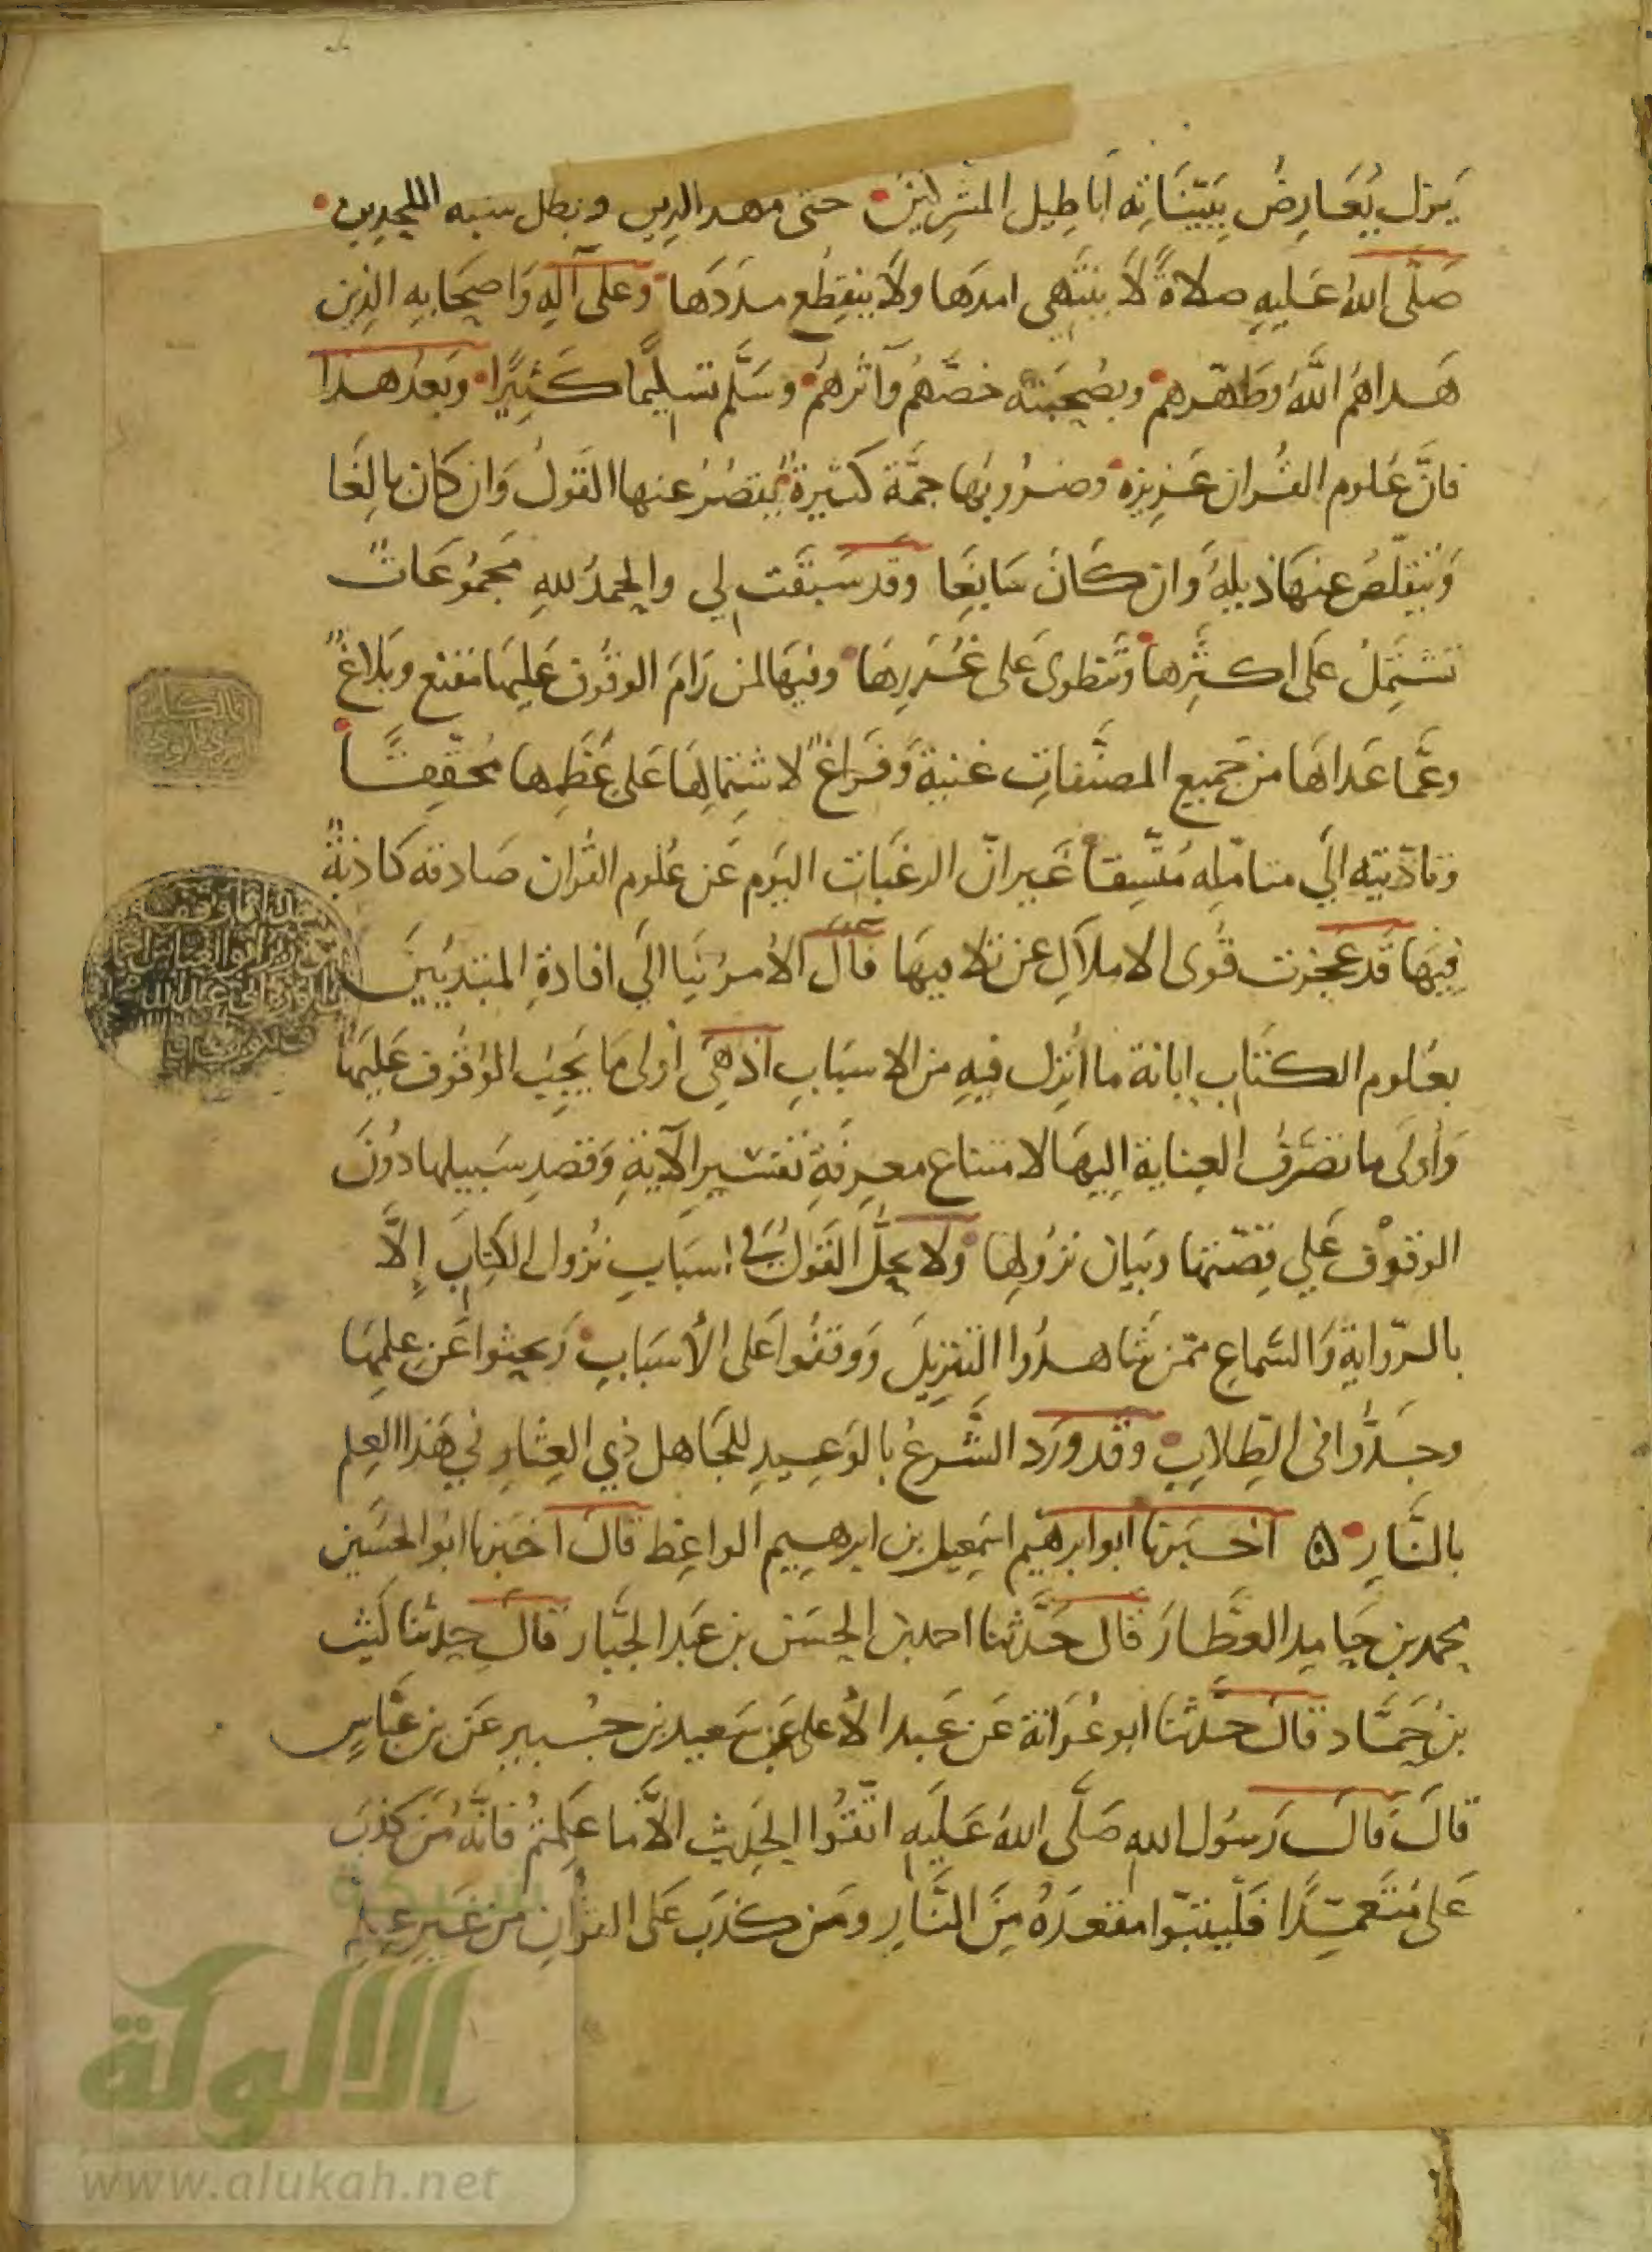 يزل يُعَارِضُ بِبَيِّنَاتِه اَبَاطِيل المشركين حتى مهد الدين وبطل شبه الملحدين
صَلَّى اللهُ عَلَيهِ صلاةً لَا ينتهى امدَها ولَا ينقطع مددَها وعلى آلِهِ وَاصحَابِهِ الذِين
هَداهُم اللَّهُ وَطَهّرهم وبصُحبَته خصَّهُم وآثرهُم وسَلَّم تسلِيمًا كَثِيرًا وَبَعدُ هذا
فانَّ عُلوم القران غزيزه وضروبها جمَّة كثيرةٌ يُقصُرُ عنها القَولُ وَان كَان بالِغًا
وَيتقلّصُ عنهَا ذيلهُ وَان كَانَ سَابِغًا وَقَد سَبَقَت لي والحمدُ للهِ مَجمُوعَاتٌ
تشتَمِلُ عَلى اكثرها وَتنطوى على غُرَرِهَا وفيهَا لمن رَامَ الوقُوف عَليهَا مَقنع وبَلاغٌ
وعَمَّا عَداهَا من جميع المصنَّفاتِ غنية وَفَراغٌ لاشتِمالِهَا عَلى عُظَمِها مُحَقّقًا
وتاَدّيته الَى متامّلِه مُتّسِقًا غَير انّ الرغبَات اليَوم عَن عُلوم القُران صَادفه كاذبةٌ
فِيهَا قَد عَجزت قُوى الاملآلِ عن تلافيهَا فآلَ الأمر بنَا الَى افادةِ المبتديِينَ
بعُلوم الكتاب ابانة ما اُنزِل فيهِ من الاسبَابِ اذ هِىَ اَولى مَا يَجِبُ الوُقُوف عَليهَا
وَأَولَى ما تصَرَفُ العِنايةَ اِليهَا لامتناع معرِفَةِ تفسيرِ الآيةِ وَقصدِ سَبيلها دُونَ
الوقوْف عَلي قِصّتها وبيَان نزُولِها ولَا يحلُّ القَوَلُ في اسبَابِ نُزول الكِتابَ اِلَّا
بالرّوايةِ وَالسّماعِ ممّن شَاهدُوا التنزِيلَ وَوَقفُوا عَلى الأسبَابِ وَبحثوا عَن عِلمِهَا
وجَدُّوا فى الطِّلابِ وقَد ورَد الشَّرعُ بالوَعِيدِ للجَاهل ذِي العِثارِ في هَذا العِلم
بالنَّارِ ٥ اخبَرنا ابو ابرهيم اسمعيل بن ابرهيم الواعِظ قالَ اخبَرنا ابو الحسَين
محمد بن حَامِد العطَّار قال حَدَّثنا احمد بن الحسَن بن عَبد الجبَّار قالَ حدثنا لَيث
بن حَمّاد قالَ حدَّثنا ابو عُوَانة عَن عَبد الأعلى عَن سَعيد بن جُبير عَن بن عَبَّاسٍ
قالَ قالَ رَسوُل اللهِ صَلَّى اللهُ عَليَه اتّقُوا الحَدِيث الاَّ ما عَلِمتُم فانَّه مَن كَذَبَ
عَلىَّ مُتَعَمِّدًا فَلْيتبوّا مقعدَهُ مِنَ النَّارِ ومَن كذبَ عَلى القرآنِ مِن غَيرِ عِلمٍ
شبكة
الألوكة
www.alukah.net